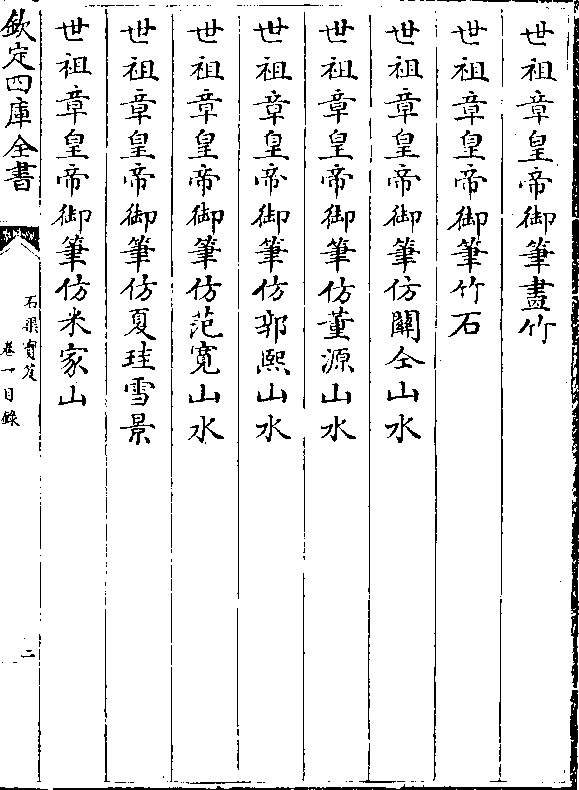 世祖章皇帝御筆畫竹
世祖章皇帝御筆竹石
世祖章皇帝御筆仿關仝山水
世祖章皇帝御筆仿董源山水
世祖章皇帝御筆仿郭熙山水
世祖章皇帝御筆仿范寛山水
世祖章皇帝御筆仿夏珪雪景
世祖章皇帝御筆仿米家山
欽定四庫全書
石渠寶笈
卷一目錄
二